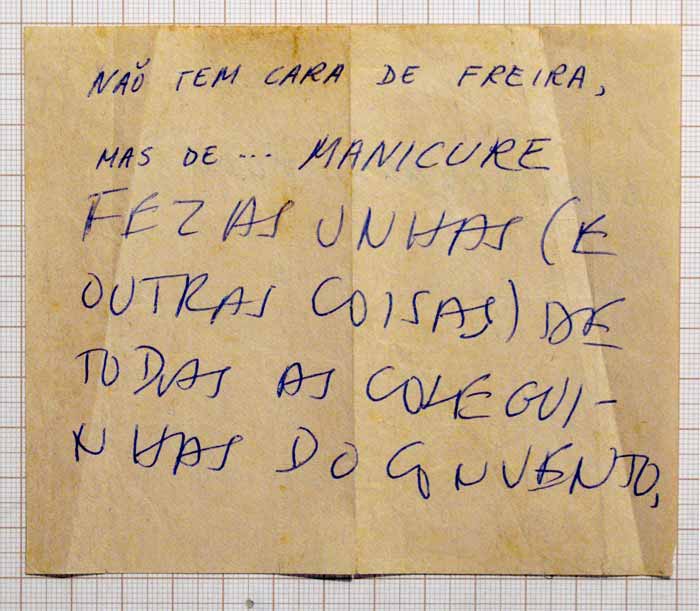 NÃO TEM CARA DE FREIRA,
MAS DE ... MANICURE
FEZ AS UNHAS (E
OUTRAS COISAS) DE
TODAS AS COLEGUI-
NHAS DO CONVENTO,